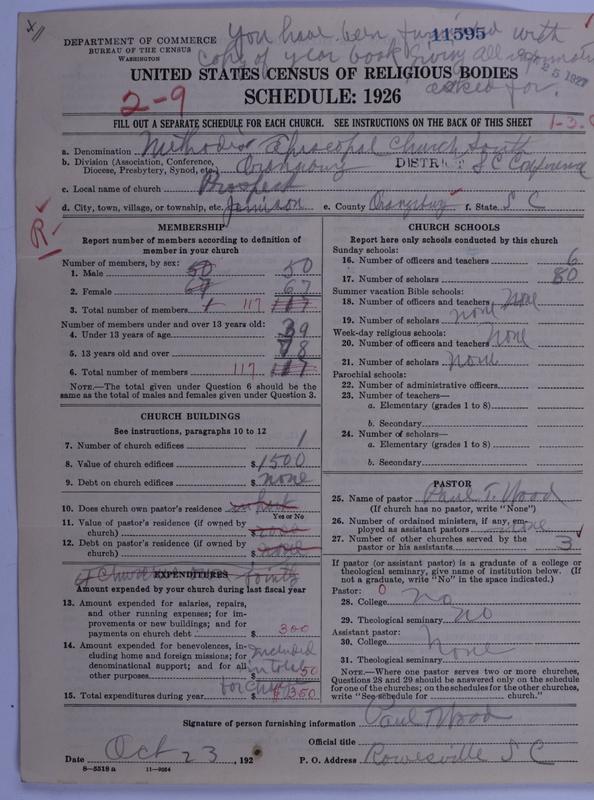 You have been furnished with
11595
DEPARTMENT OF COMMERCE
BUREAU OF THE CENSUS
WASHINGTON
copy of year book giving all information
25 1927
asked for.
UNITED STATES CENSUS OF RELIGIOUS BODIES
SCHEDULE: 1926
2-9
FILL OUT A SEPARATE SCHEDULE FOR EACH CHURCH. SEE INSTRUCTIONS ON THE BACK OF THIS SHEET
1-3.
a. Denomination Methodist Episcopal Church South
b. Division (Association, Conference, Diocese, Presbytery, Synod, etc.) Orangeburg DISTRICT S C Conference
c. Local name of church Prospect
d. City, town, village, or township, etc. Jamison e. County Orangeburg f. State S C
R
MEMBERSHIP
Report number of members according to definition of
member in your church
Number of members, by sex:
1. Male 50 50
2. Female 67 67
3. Total number of members 117 117
Number of members under and over 13 years old:
4. Under 13 years of age 39
5. 13 years old and over 78
6. Total number of members 117 117
NOTE.—The total given under Question 6 should be the
same as the total of males and females given under Question 3.
CHURCH BUILDINGS
See instructions, paragraphs 10 to 12
7. Number of church edifices 1
8. Value of church edifices $1500
9. Debt on church edifices $none
10. Does church own pastor's residence in part
Yes or No
11. Value of pastor's residence (if owned by
church) $
12. Debt on pastor's residence (if owned by
church) $none
EXPENDITURES
Amount expended by your church during last fiscal year
13. Amount expended for salaries, repairs,
and other running expenses; for im-
provements or new buildings; and for
payments on church debt $ 300
14. Amount expended for benevolences, in-
cluding home and foreign missions; for
denominational support; and for all
other purposes $ 50
included
in total
for chg
15. Total expenditures during year $ $350
CHURCH SCHOOLS
Report here only schools conducted by this church
Sunday schools:
16. Number of officers and teachers 6
17. Number of scholars 80
Summer vacation Bible schools:
18. Number of officers and teachers None
19. Number of scholars none
Week-day religious schools:
20. Number of officers and teachers none
21. Number of scholars none
Parochial schools:
22. Number of administrative officers
23. Number of teachers—
a. Elementary (grades 1 to 8)
b. Secondary
24. Number of scholars—
a. Elementary (grades 1 to 8)
b. Secondary
PASTOR
25. Name of pastor Paul T. Wood
(If church has no pastor, write "None")
26. Number of ordained ministers, if any, em-
ployed as assistant pastors none
27. Number of other churches served by the
pastor or his assistants 3
If pastor (or assistant pastor) is a graduate of a college or
theological seminary, give name of institution below. (If
not a graduate, write "No" in the space indicated.)
Pastor: 0
28. College no
29. Theological seminary no
Assistant pastor:
30. College None
31. Theological seminary
NOTE.—Where one pastor serves two or more churches,
Questions 28 and 29 should be answered only on the schedule
for one of the churches; on the schedules for the other churches,
write "See schedule for church."
Signature of person furnishing information Paul T Wood
Official title
Date Oct 23, 192
P. O. Address Rowesville S C
8—5518 a 11—9064